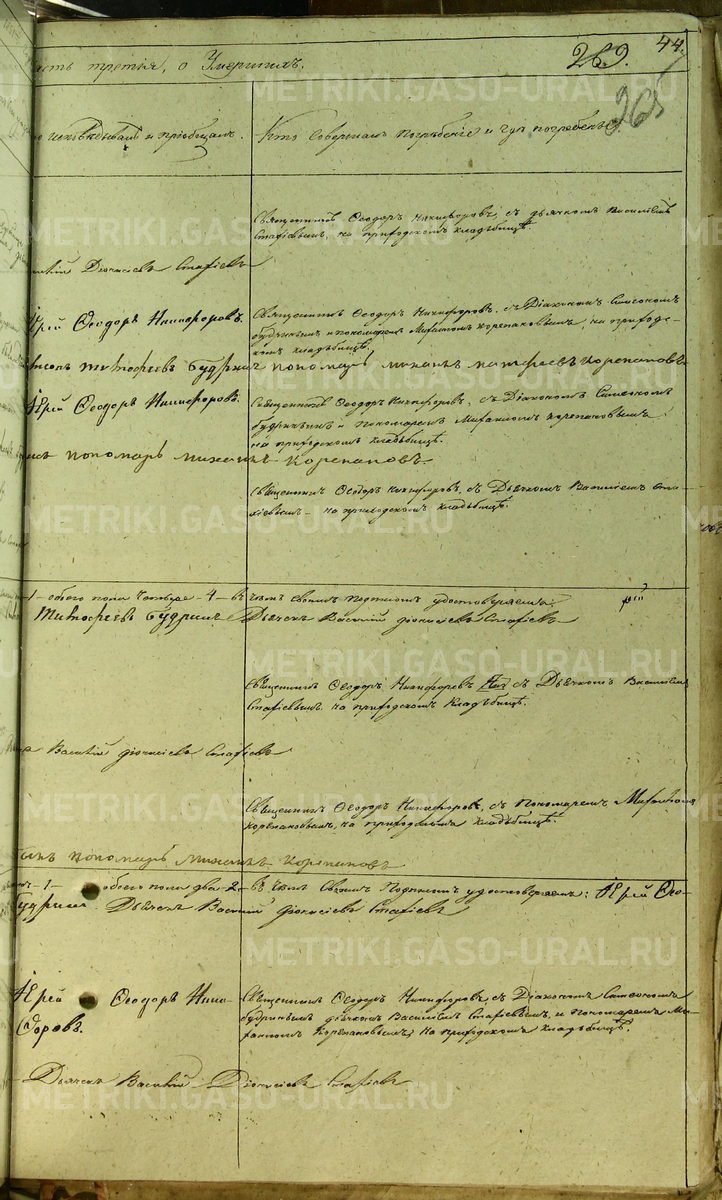 44.
269.
265
асть третія, о Умершихъ.
исповѣдывалъ и пріобщалъ.
Кто совершалъ погребеніе и гдѣ погребены.
Священникъ Ѳеодоръ Никифоровъ, съ дьячкомъ Василіемъ
Стафіевымъ, на приходскомъ кладбищѣ.
Діонисіевъ Стафіевъ
Іерей Ѳеодоръ Никифоровъ.
Священникъ Ѳеодоръ Никифоровъ, съ Діакономъ Симеономъ
Будринымъ и пономаремъ Михаиломъ Корепановымъ, на приход-
скомъ кладбищѣ.
Тимофеевъ Будринъ пономарь Михаилъ Матфеевъ Корепановъ
Іерей Ѳеодоръ Никифоровъ.
Священникъ Ѳеодоръ Никифоровъ, съ Діакономъ Симеономъ
Будринымъ и Пономаремъ Михаиломъ Корепановымъ
на приходскомъ кладбищѣ.
пономарь Михаилъ Корепановъ.
Священникъ Ѳеодоръ Никифоровъ, съ Дьячкомъ Василіемъ Ста-
фіевымъ на приходскомъ кладбищѣ.
1 - обоего пола четыре - 4 - въ чемъ своимъ подписомъ удостовѣряемъ:
Тимофеевъ Будринъ Дьячекъ Василій Діонисіевъ Стафіевъ
Священникъ Ѳеодоръ Никифоровъ съ Дьячкомъ Василіемъ
Стафіевымъ на приходскомъ кладбищѣ.
Василій Діонисіевъ Стафіевъ
Священникъ Ѳеодоръ Никифоровъ, съ Пономаремъ Михаиломъ
Корепановымъ, на приходскомъ кладбищѣ.
пономарь Михаилъ Корепановъ
1 - обоего пола два - 2 - въ чемъ своимъ подписомъ удостовѣряемъ: Іерей Ѳео-
Будринъ Дьячекъ Василій Діонисіевъ Стафіевъ
Іерей Ѳеодоръ Ники-
форовъ.
Священникъ Ѳеодоръ Никифоровъ, съ Діакономъ Симеономъ
Будринымъ дьячкомъ Василіемъ Стафіевымъ, и Пономаремъ Ми-
хаиломъ Корепановымъ, на приходскомъ кладбищѣ.
Дьячекъ Василій Діонисіевъ Стафіевъ
METRIKI.GASO-URAL.RU